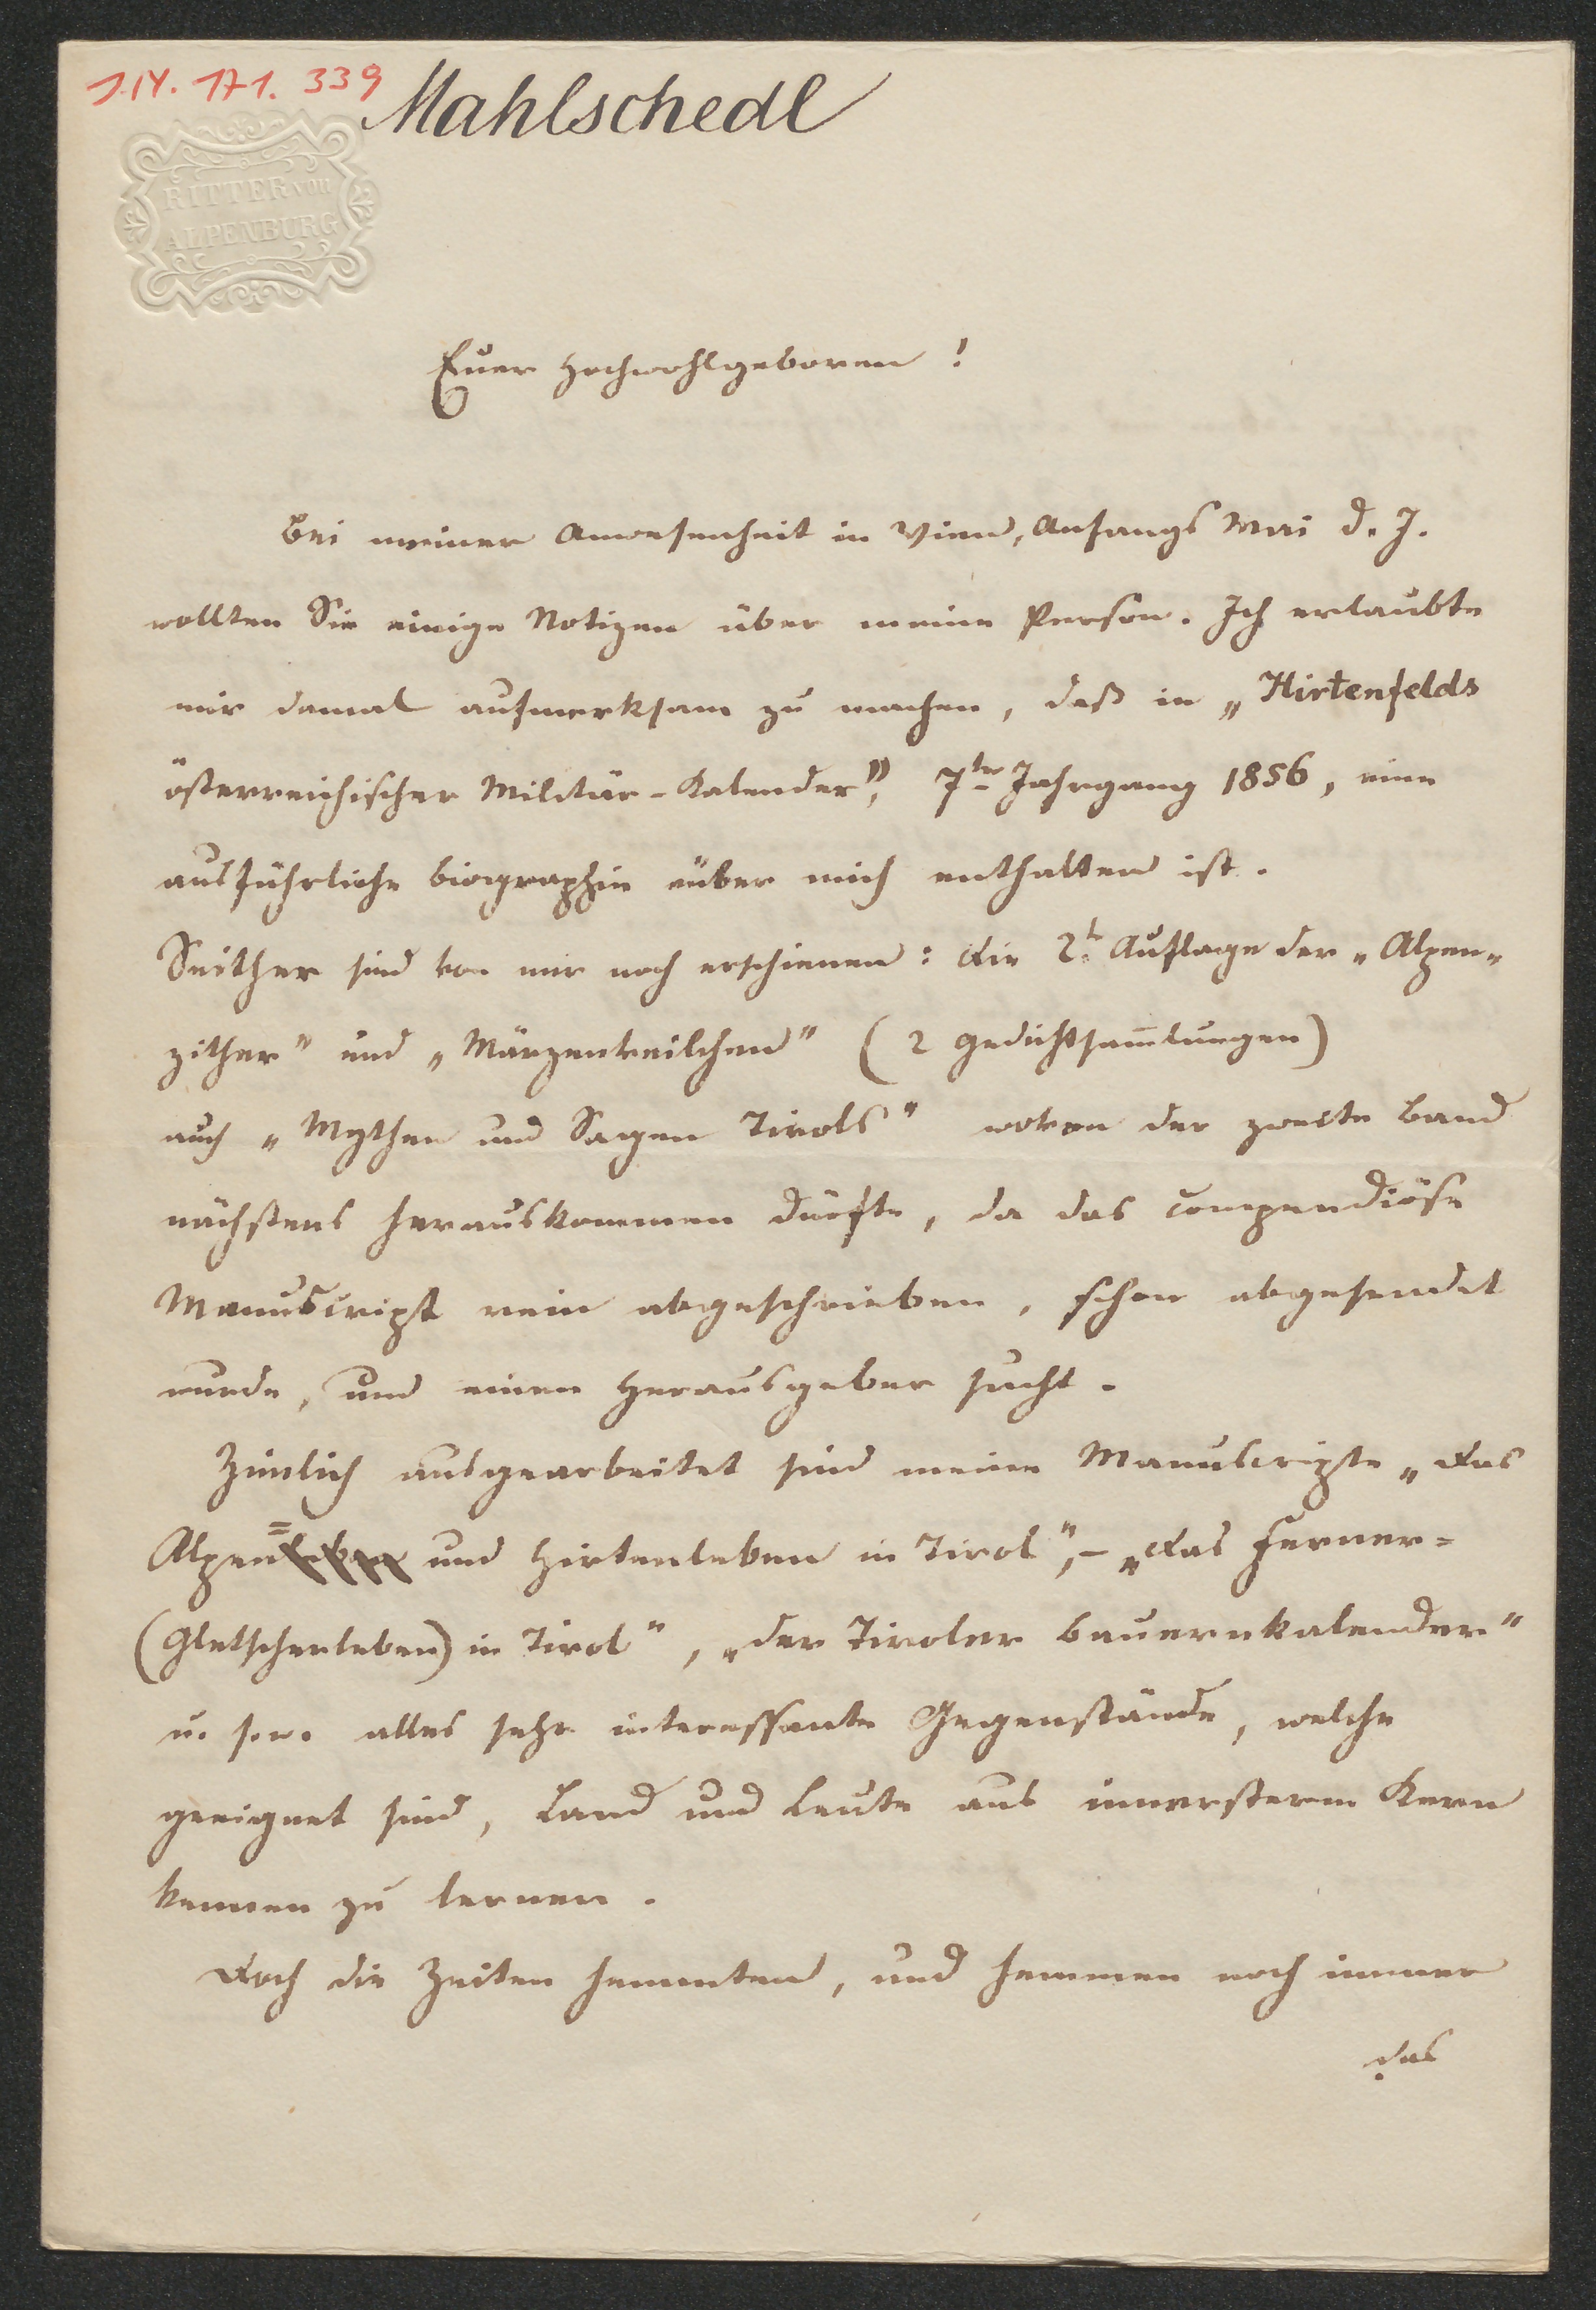 J.N. 171.339
Mahlschedl
RITTER von
ALPENBURG
Euer Hochwohlgeboren!
Bei meiner Anwesenheit in Wien, Anfangs Mai d. J.
wollten Sie einige Notizen über meine Person. Ich erlaubte
mir damal aufmerksam zu machen, daß in „Hirtenfelds
österreichischer Militär-Kalender", 7ter Jahrgang 1856, eine
ausführliche Biographie über mich enthalten ist.
Seither sind von mir noch erschienen: die 2t. Auflage der „Alpen-
zither" und „Märzenveilchen" (2 Gedichtsam̄lungen)
auch „Mythen und Sagen Tirols" wovon der zweite Band
nächstens herauskommen dürfte, da das compendiöse
Manuscript rein abgeschrieben, schon abgesendet
wurde, und einen Herausgeber sucht.
Zimlich ausgearbeitet sind meine Manuscripte „das
Alpen= und Hirtenleben in Tirol", – „das Ferner=
(Gletscherleben) in Tirol", „der Tiroler Bauernkalender"
u. s. w. alles sehr interessante Gegenstände, welche
geeignet sind, Land und Leute aus innersterem Kern
kennen zu lernen.
Doch die Zeiten hemmten, und hemmen noch immer
das